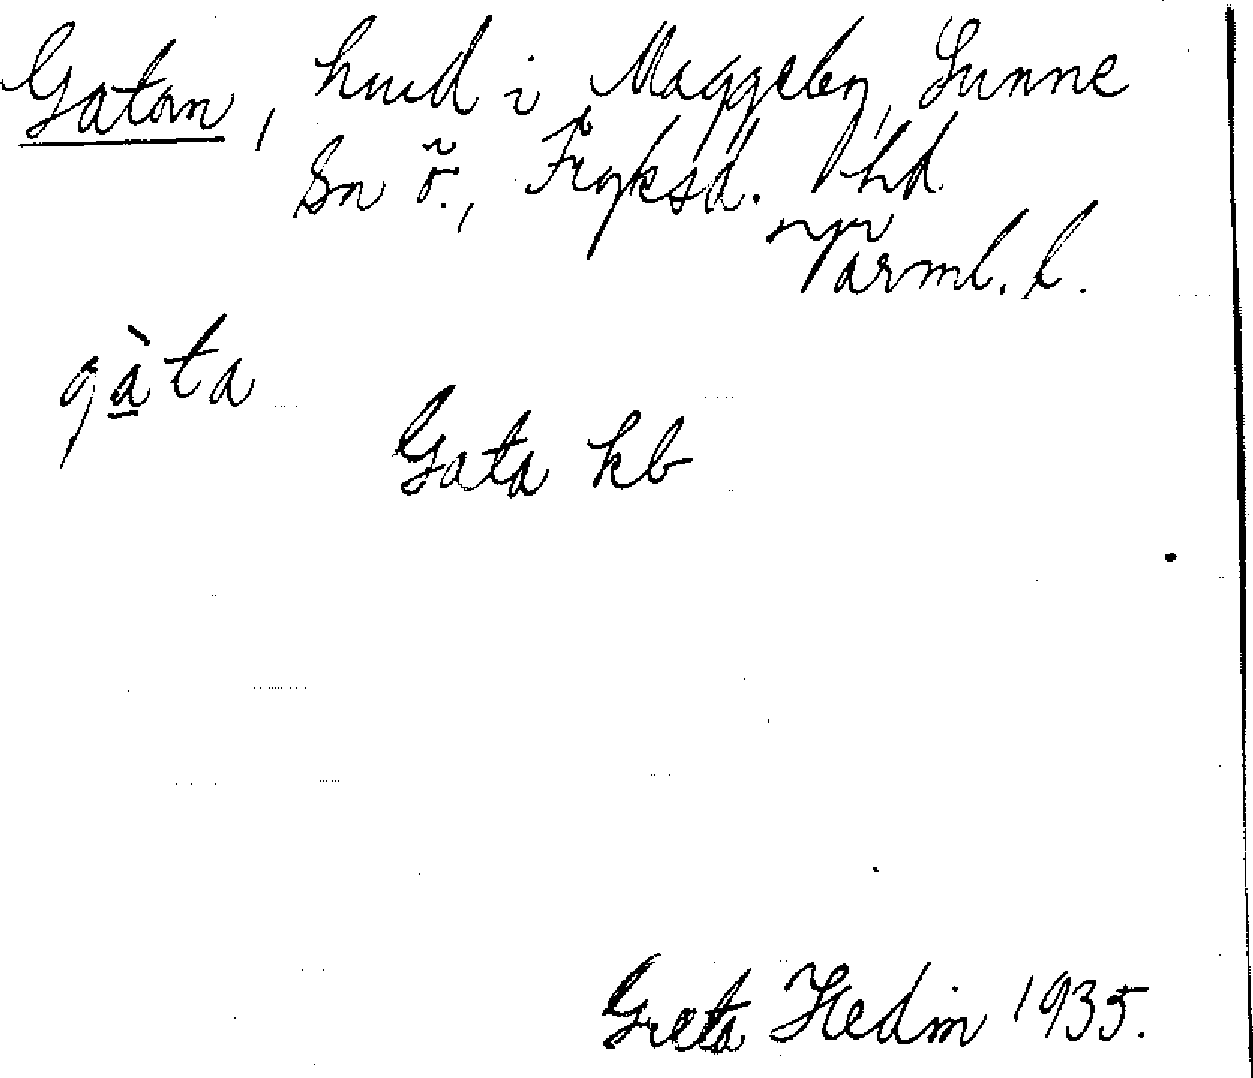 Gatan, hmd i Maggeby, Sunne
Sn ö., Fryksd. hd
Värml. l.
gàta
Gata kb
Greta Hedin 1935.